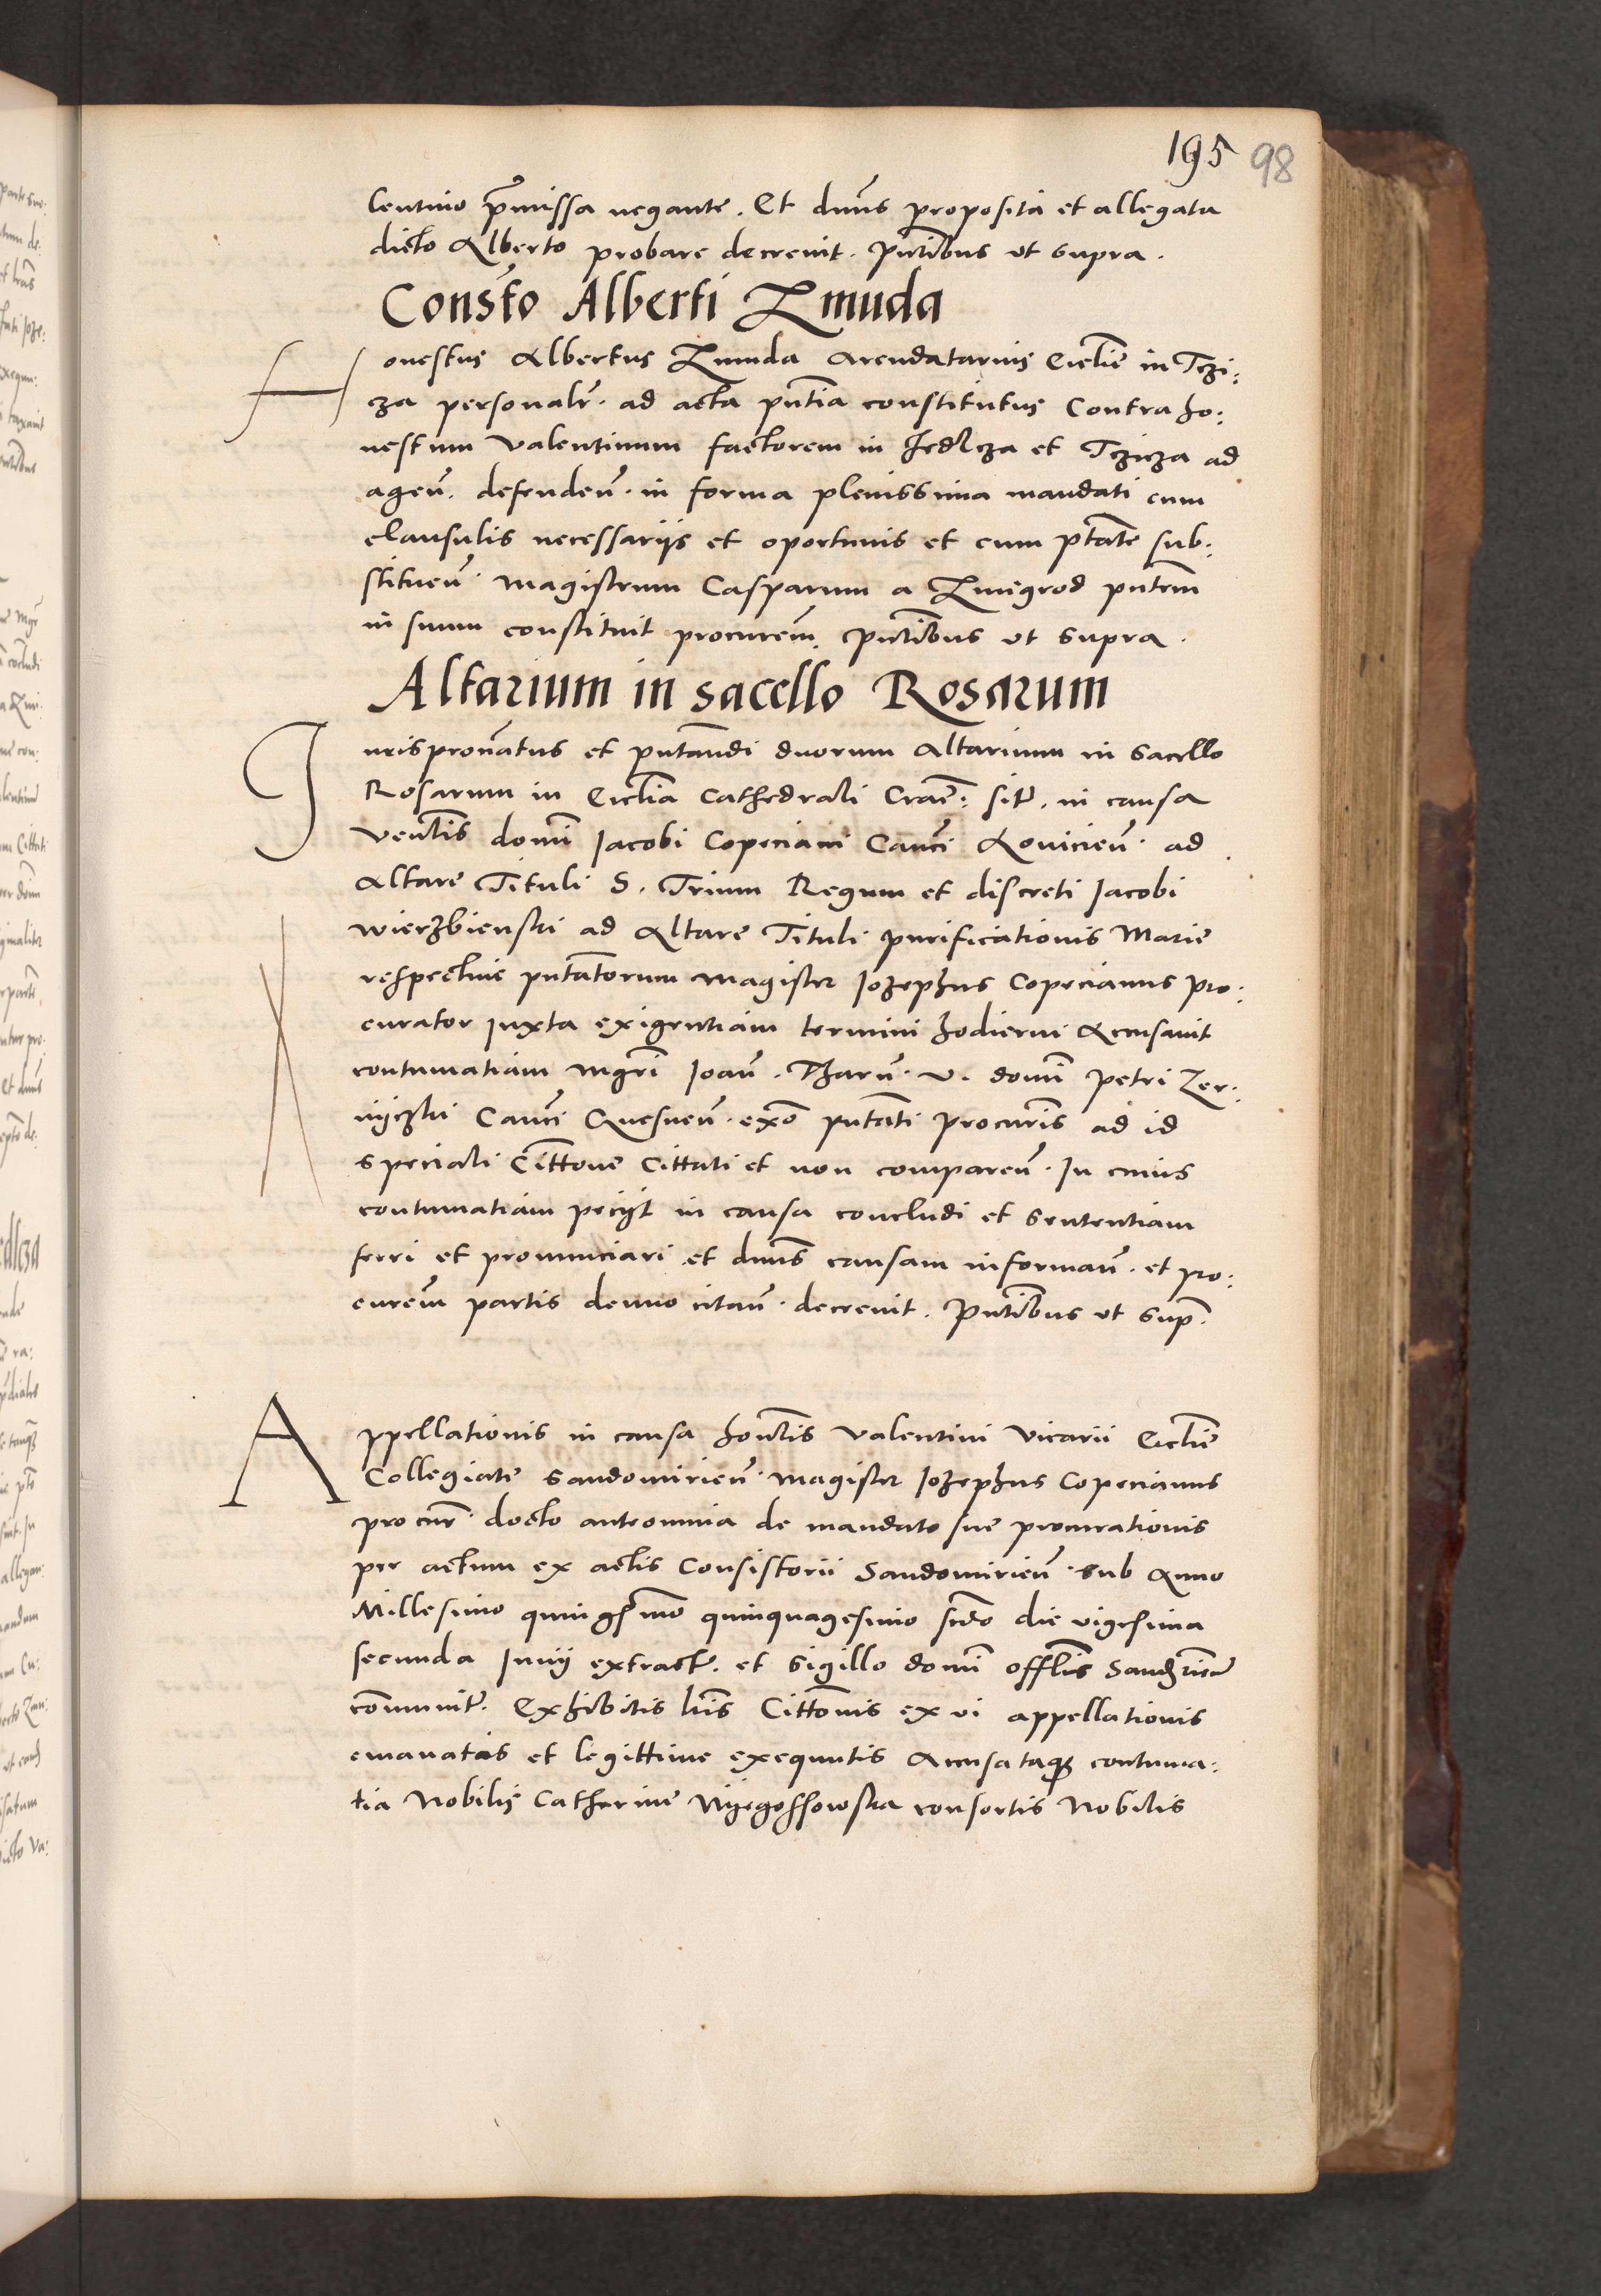 195 98
lentino p̃missa negante. Et dnũs proposita et allegata
dicto Alberto probare decrevit. Pñtibus ut supra.
Const̃o Alberti Zmuda
Honestus Albertus Zmuda Arendatarius Ecclie in Tczi:
cza personalr̃. ad acta pñtia constitutus Contra ho:
nestum Valentinum factorem in Jedlcza et Tczicza ad
ageñ. defendeñ. in forma plenissima mandati cum
clausulis necessariis et oportunis et cum ptãte sub:
stitueñ. Magistrum Casparum a Zmigrod pñtem
in suum constituit procurem̃. Pñtibus ut supra.
Altarium in sacello Rosarum
Jurispronãtus et pñtandi duorum Altarium in Sacello
Rosarum in Ecclia Cathedrali Crac̃: sitr̃. in causa
Venl̃is domi Jacobi Copeciani Canci Lovicieñ. ad
Altare Tituli S. Trium Regum et discreti Jacobi
Wierzbienski ad Altare Tituli purificationis Marie
respective pñtatorum Magister Jozephus Copecianus Pro:
curator Juxta exigentiam termini hodierni Accusavit
contumatiam Mgr̃i Joañ. Tharñ. v. domi Petri Zer:
nijczki Canci Gnesneñ. exõ pñtati Procuris ad id
speciali Cittone Cittati et non compareñ. In cuius
contumatiam pecijt in causa concludi et sententiam
ferri et pronunciari et dnũs causam informañ. et pro:
curem̃ partis denuo citañ. decrevit. Pñtibus ut sup̃.
Appellationis in causa honl̃is Valentini Vicarii Ecclie
Collegiate Sandomirieñ. Magister Jozephus Copecianus
procur̃. docto anteomnia de mandato sue procurationis
per actum ex actis Consistorii Sandomirieñ. sub Anno
Millesimo quingmo quinquagesimo scdo die vigesima
secunda Junij extractr̃. et sigillo domi offlis
com̃unitr̃. Exhibitis lr̃is Cittonis ex vi appellationis
emanatis et legittime exequutis Accusataq contuma:
tia Nobilis Catherine Nijegossowska consortis Nobilis